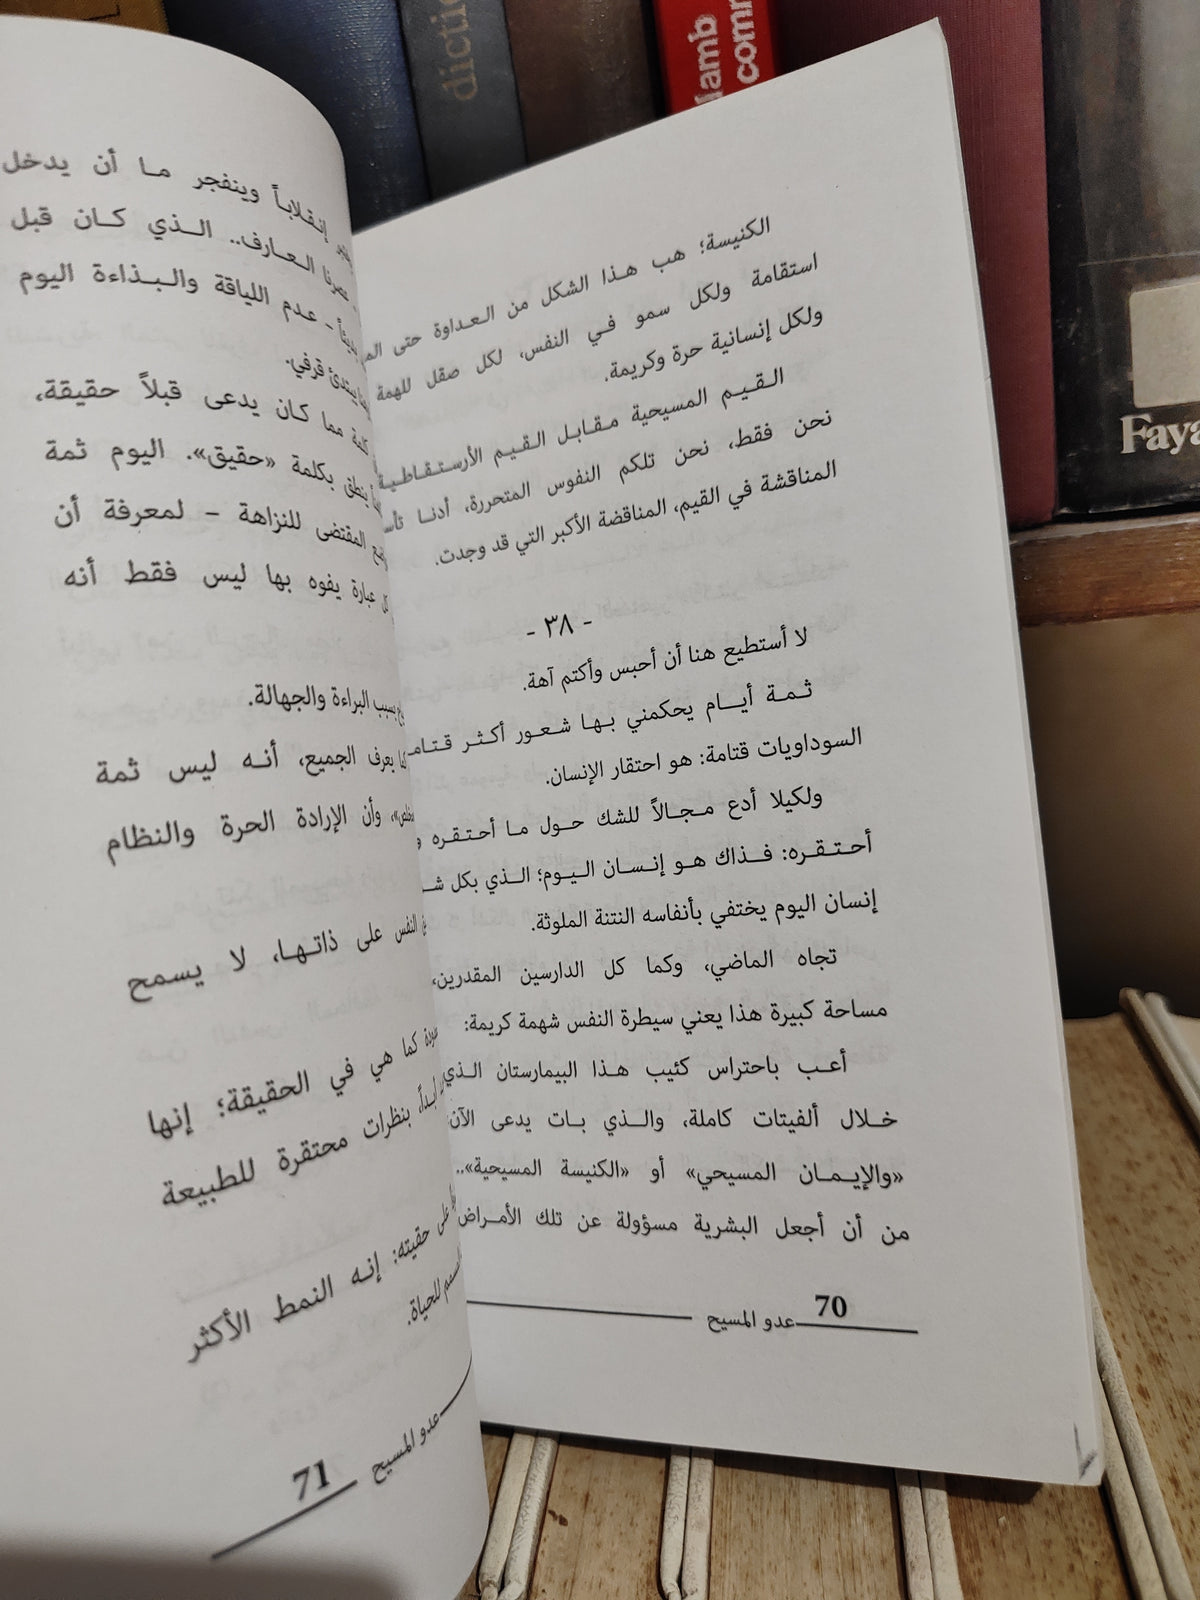 الكنيسة؛ هب هـذا الشكل من الـعـداوة حتى
استقامة ولكل سمو فـي النفس، لكل صقل للهمة
ولكل إنسانية حرة وكريمة.
الـقـيـم المسيحية مـقـابـل الـقـيـم الأرسـتـقـاطـيـة
نحن فقط، نحن تلكم النفوس المتحررة، أدنـا
المناقشة في القيم، المناقضة الأكبر التي قد وجدت.
- ٣٨ -
لا أستطيع هنا أن أحبس وأكتم آهة.
ثـمـة أيــام يحكمني بـهـا شـعـور أكـثـر
السوداويات قتامة: هو احتقار الإنسان.
ولكيلا أدع مـجـالاً للشك حـول مـا أحـتـقـره
أحـتـقـره: فـذاك هـو إنـسـان الـيـوم؛ الـذي بكل
إنسان اليوم يختفي بأنفاسه النتنة الملوثة.
تجاه الماضي، وكما كل الدارسين المقدرين،
مساحة كبيرة هذا يعني سيطرة النفس شهمة كريمة:
أعـب باحتراس كئيب هـذا البيمارستان الـذي
خـلال ألفيتات كاملة، والـذي بـات يدعى الآن
«والإيـمـان المسيحي» أو «الكنيسة المسيحية»..
من أن أجعل البشرية مسؤولة عن تلك الأمـراض
70 عدو المسيح
إنـقـلابـاً وينفجر مـا أن يدخل
عصرنا الـعـارف.. الـذي كـان قبل
- عـدم اللياقة والـبـذاءة اليوم
يبتدئ قرفي.
كلمة مما كـان يدعى قبلاً حقيقة،
ينطق بكلمة «حقيق». اليوم ثمة
المقتضى للنزاهة – لمعرفة أن
كل عبارة يفوه بها ليس فقط أنه
بسبب البراءة والجهالة.
يعرف الجميع، أنـه ليس ثمة
وأن الإرادة الحرة والنظام
النفس على ذاتـهـا، لا يسمح
كما هي في الحقيقة؛ إنها
بنظرات محتقرة للطبيعة
على حقيته: إنـه النمط الأكثر
للحياة.
71 عدو المسيح
dictio
lamb
comm
Faya